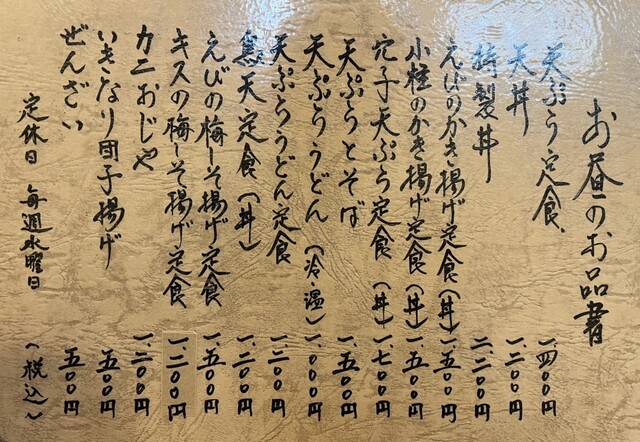 お昼のお品書
天ぷら定食 一、四〇〇円
天丼 一、二〇〇円
特製丼 二、二〇〇円
えびのかき揚げ定食(丼) 一、五〇〇円
小柱のかき揚げ定食(丼) 一、五〇〇円
穴子天ぷら定食(丼) 一、七〇〇円
天ぷらとそば 一、五〇〇円
天ぷらうどん(冷・温) 一、〇〇〇円
天ぷらうどん定食 一、三〇〇円
魚天定食(丼) 一、二〇〇円
えびの梅しそ揚げ定食 一、五〇〇円
キスの梅しそ揚げ定食 一、二〇〇円
カニおじや 一、二〇〇円
いきなり団子揚げ 五〇〇円
ぜんざい 五〇〇円
定休日 毎週水曜日 (税込)